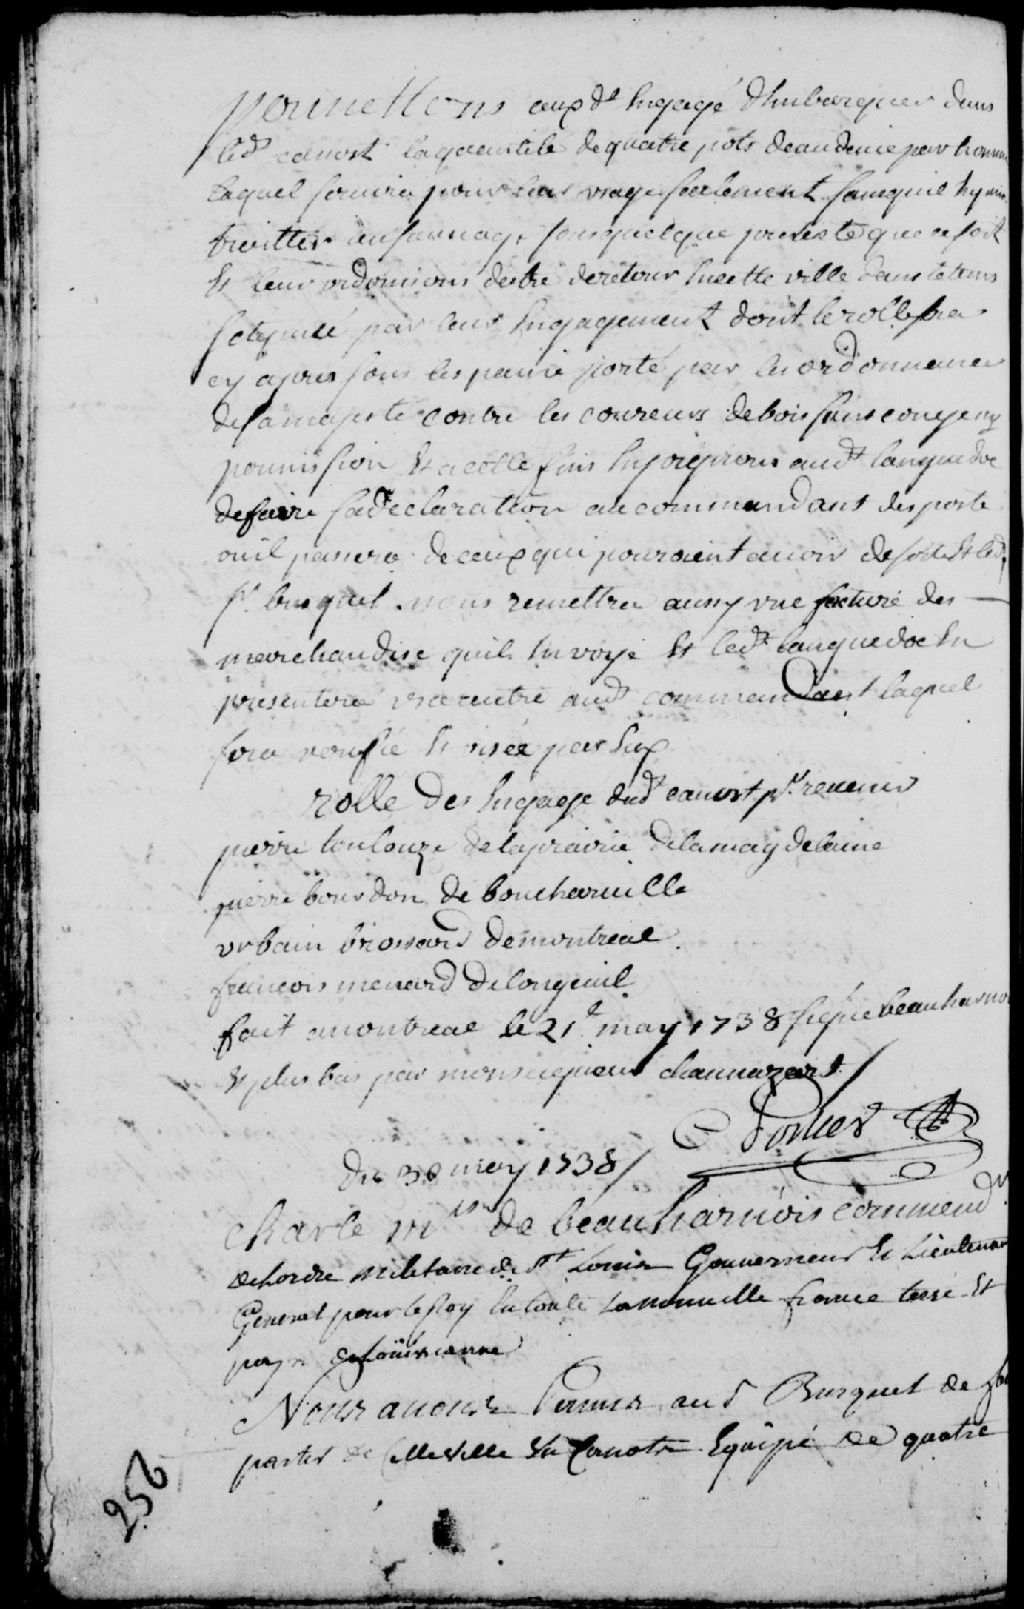 permettons aux dt Engagé d'Embarquer dans
led canost la quantité de quatre pots deaudevie par homme
laquel servira pour leur usage seulement sans quil En puisse
traitter au sauvage sous quelque pretexte que ce soit
Et leur ordonnons destre de retour En cette ville dans le tems
stipulé par leur Engagement dont le rolle sera
cy apres sous les peine porté par les ordonnance
de sa majesté contre les coureurs de bois sans congé ny
permission Et a cette fins Enjoignons audt languedoc
de faire sa declaration au commandant des poste
ou il passera de ceux qui pouroient avoir deserté Et led
sr. busquet nous remettra aussy une facture des
marchandise quil Envoye Et ledt languedoc En
presentera une autre audt commendant laquel
sera verifié Et visée par Eux
rolle des Engagé dudt canost pr. revenir
pierre toulouze de laprairie de la magdeleine
pierre bourdon de boucherville
urbain brossard de montreal
francois menard de longeuil
fait a montreal le 21e may 1738 signé beauharnois
& plus bas par monseigneur chauuazard /
Porlier
Du 30 may 1738 /
Charle mis de beauharnois commendr
de lordre militaire de St Louis Gouverneur Et Lieutenant
General pour le Roy En toute La nouvelle france terre Et
pays de La loüisianne
Nous avons Permis au Sr Busquet de faire
partir de Cette ville Un Canot Equipé de quatre
256